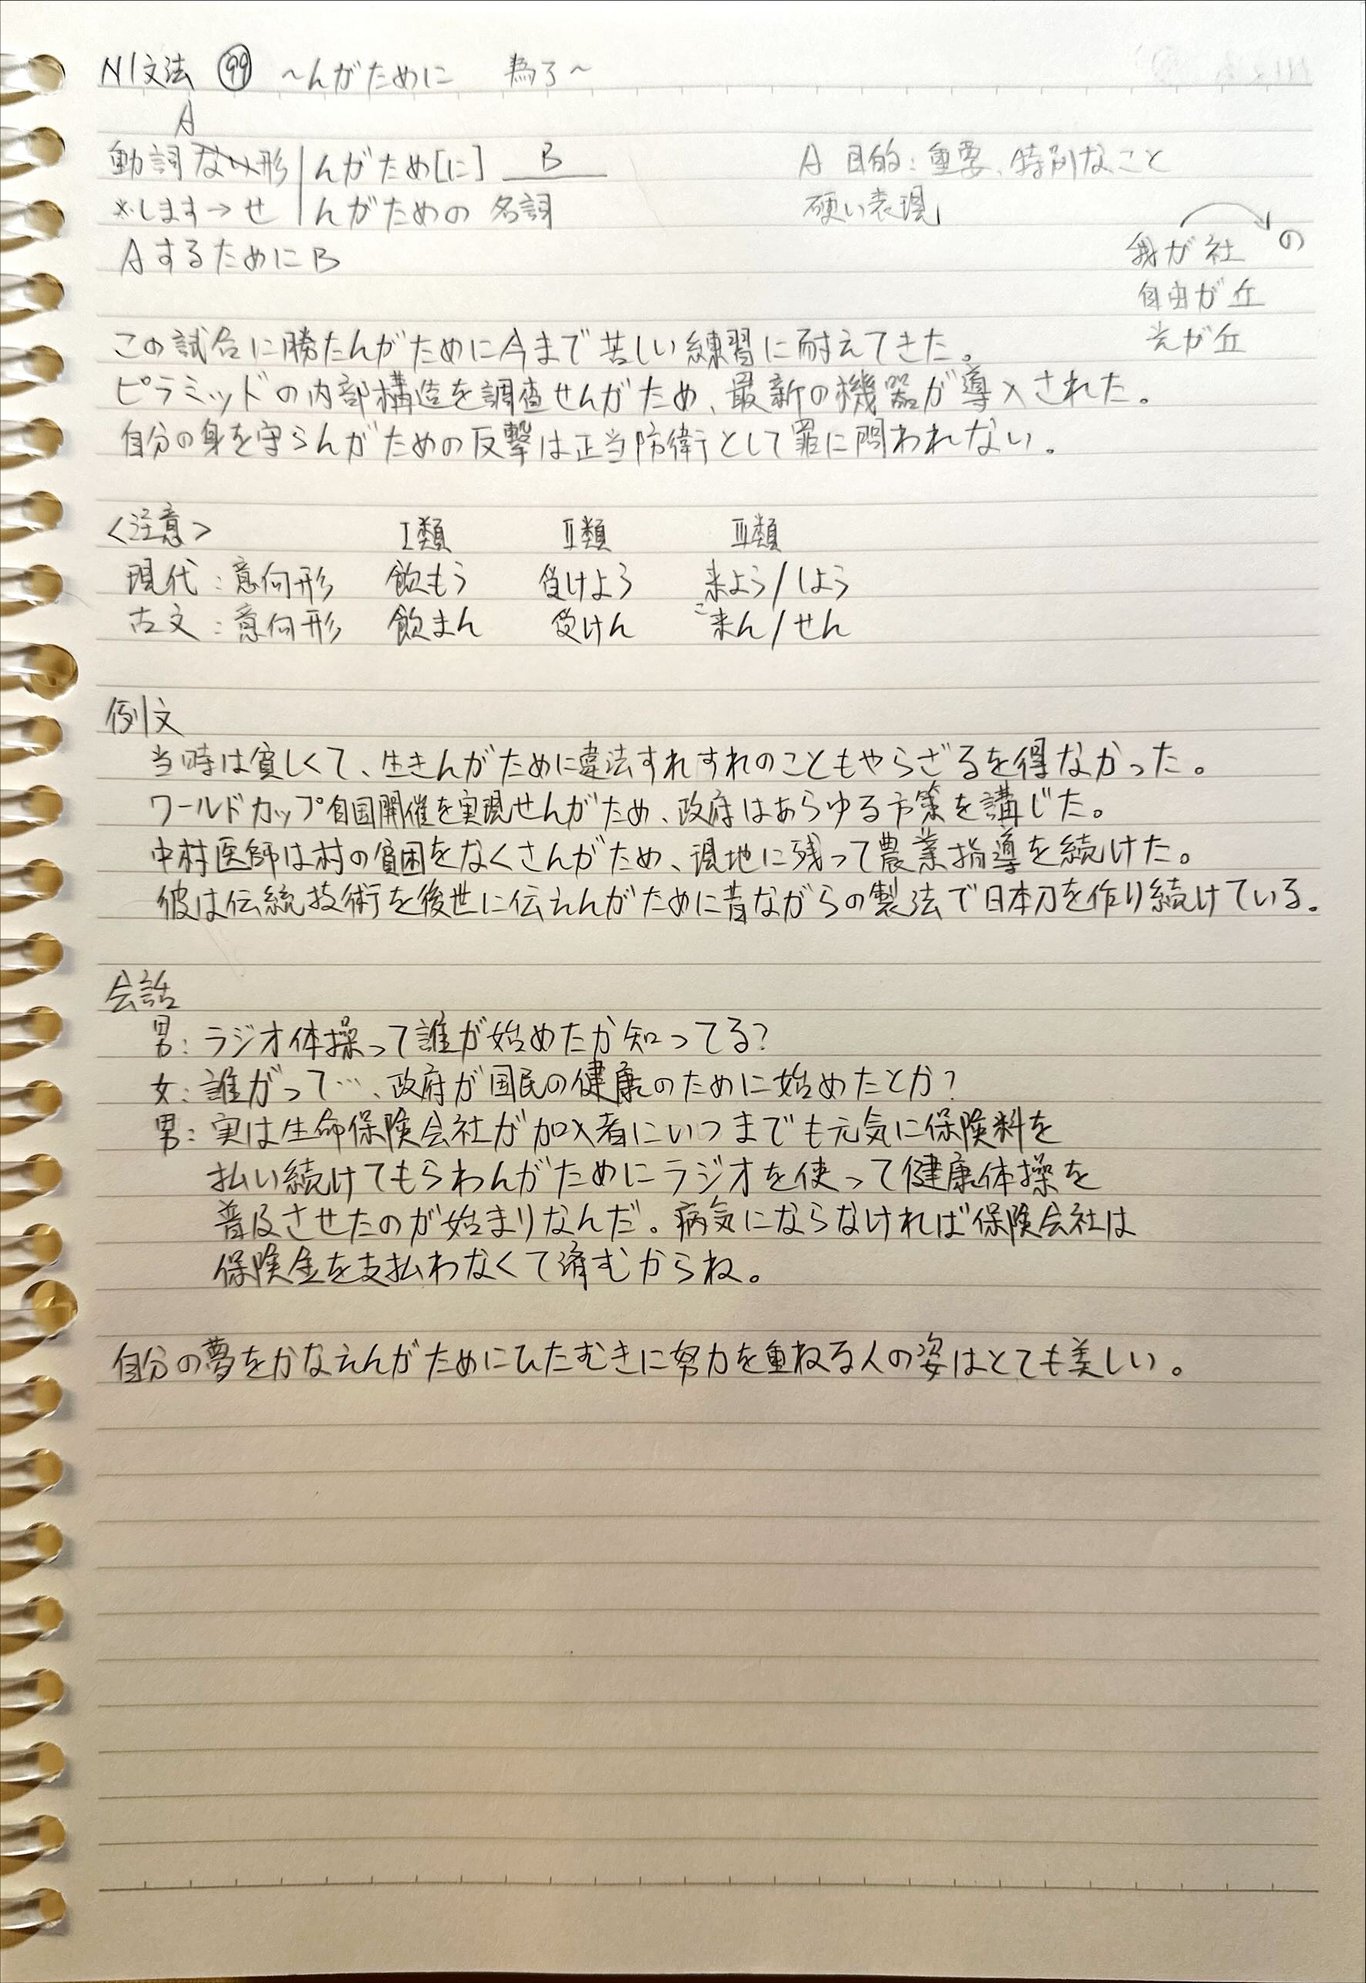 N1文法 ㊾ ～んがために 為了～
A
動詞ない形 んがため[に] B
※します→せ んがための 名詞
AするためにB
A 目的:重要、特別なこと
硬い表現
我が社 の
自由が丘
光が丘
この試合に勝たんがために今まで苦しい練習に耐えてきた。
ピラミッドの内部構造を調査せんがため、最新の機器が導入された。
自分の身を守らんがための反撃は正当防衛として罪に問われない。
<注意> Ⅰ類 Ⅱ類 Ⅲ類
現代:意向形 飲もう 受けよう 来よう/しよう
古文:意向形 飲まん 受けん 来ん/せん
こ
例文
当時は貧しくて、生きんがために違法すれすれのこともやらざるを得なかった。
ワールドカップ自国開催を実現せんがため、政府はあらゆる方策を講じた。
中村医師は村の貧困をなくさんがため、現地に残って農業指導を続けた。
彼は伝統技術を後世に伝えんがために昔ながらの製法で日本刀を作り続けている。
会話
男:ラジオ体操って誰が始めたか知ってる?
女:誰がって…、政府が国民の健康のために始めたとか?
男:実は生命保険会社が加入者にいつまでも元気に保険料を
払い続けてもらわんがためにラジオを使って健康体操を
普及させたのが始まりなんだ。病気にならなければ保険会社は
保険金を支払わなくて済むからね。
自分の夢をかなえんがためにひたむきに努力を重ねる人の姿はとても美しい。